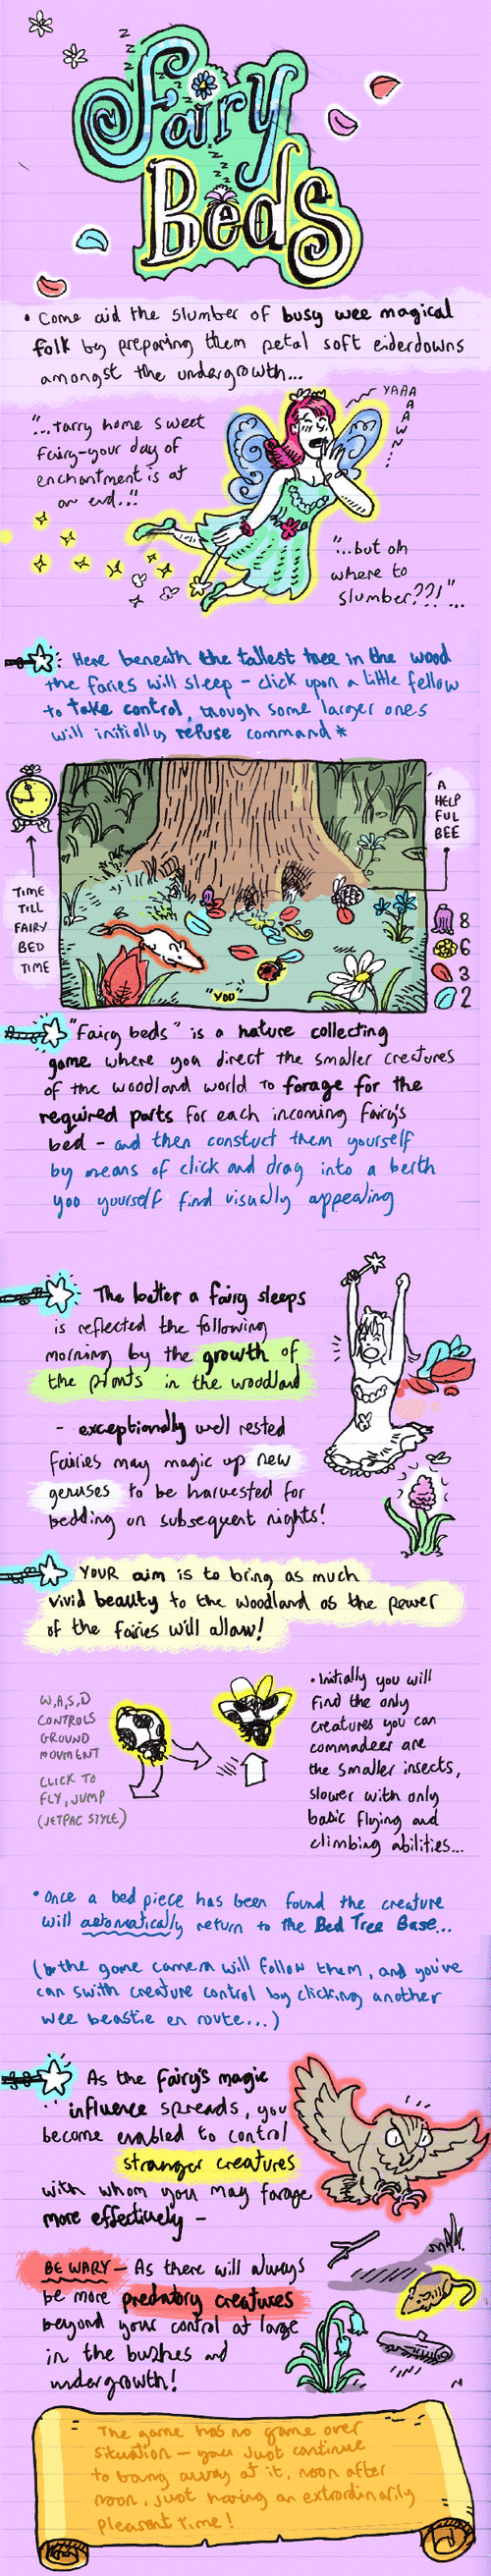 Fairy
Beds
• Come aid the slumber of busy wee magical
folk by preparing them petal soft eiderdowns
amongst the undergrowth...
YAAAAWN...
"...tarry home sweet
fairy-your day of
enchantment is at
an end.."
"...but oh
where to
slumber??!"...
Here beneath the tallest tree in the wood
the faries will sleep - click upon a little fellow
to take control, though some larger ones
will initially refuse command*
A
HELP
FUL
BEE
TIME
TILL
FAIRY
BED
TIME
8
6
3
2
"YOU"
"Fairy beds" is a nature collecting
game where you direct the smaller creatures
of the woodland world to forage for the
required parts for each incoming fairy's
bed - and then constuct them yourself
by means of click and drag into a berth
you yourself find visually appealing
The better a fairy sleeps
is reflected the following
morning by the growth of
the plants in the woodland
- exceptionally well rested
fairies may magic up new
genuses to be harvested for
bedding on subsequent nights!
YOUR aim is to bring as much
vivid beauty to the woodland as the power
of the fairies will allow!
W,A,S,D
CONTROLS
GROUND
MOVMENT
CLICK TO
FLY, JUMP
(JETPAC STYLE)
• Initially you will
find the only
creatures you can
commadeer are
the smaller insects,
slower with only
basic flying and
climbing abilities...
• Once a bed piece has been found the creature
will automatically return to the Bed Tree Base...
(the game camera will follow them, and you've
can swith creature control by clicking another
wee beastie en route...)
As the fairy's magic
influence spreads, you
become enabled to control
stranger creatures
with whom you may forage
more effectively -
BE WARY - As there will always
be more predatory creatures
beyond your control at large
in the bushes and
undergrowth!
The game has no game over
situation - you just continue
to bang away at it, noon after
noon, just having an extrordinarily
pleasant time!